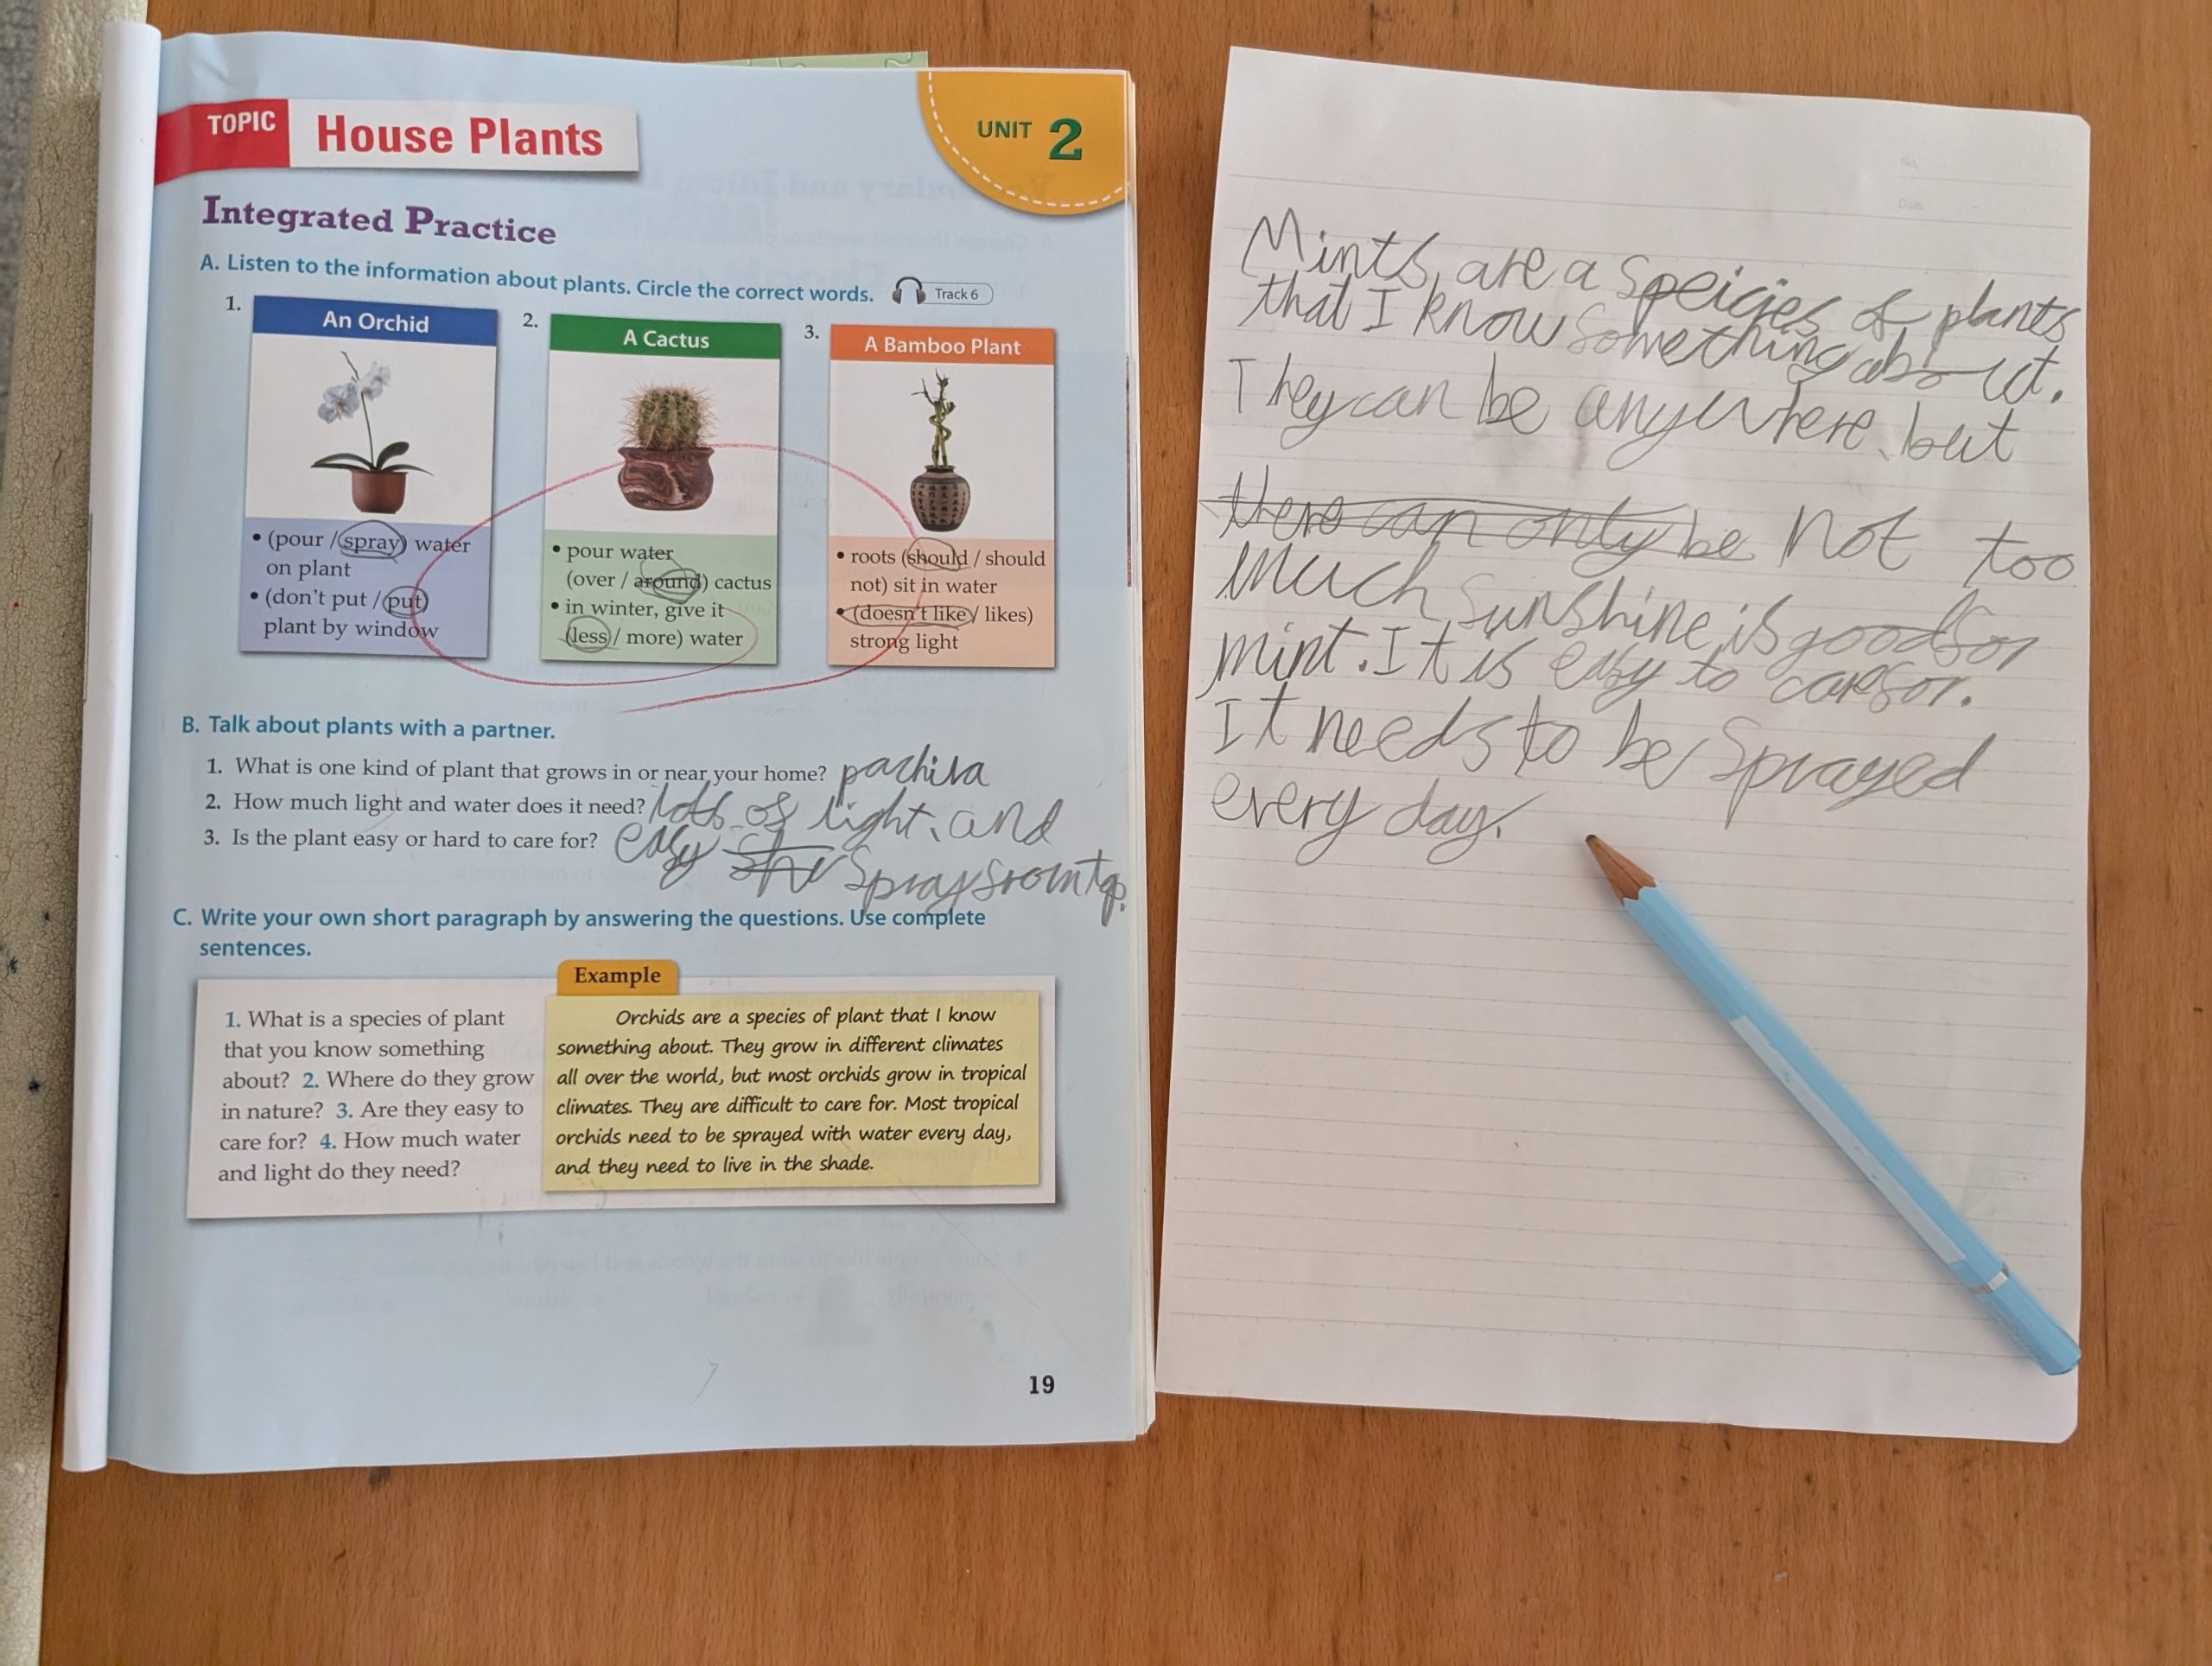 TOPIC House Plants
UNIT 2
Integrated Practice
A. Listen to the information about plants. Circle the correct words.
Track 6
1.
An Orchid
• (pour / spray) water
on plant
• (don't put / put)
plant by window
2.
A Cactus
• pour water
(over / around) cactus
• in winter, give it
(less / more) water
3.
A Bamboo Plant
• roots (should / should
not) sit in water
• (doesn't like / likes)
strong light
B. Talk about plants with a partner.
1. What is one kind of plant that grows in or near your home? pachira
2. How much light and water does it need? lots of light, and
3. Is the plant easy or hard to care for? easy
spray from top.
C. Write your own short paragraph by answering the questions. Use complete
sentences.
1. What is a species of plant
that you know something
about? 2. Where do they grow
in nature? 3. Are they easy to
care for? 4. How much water
and light do they need?
Example
Orchids are a species of plant that I know
something about. They grow in different climates
all over the world, but most orchids grow in tropical
climates. They are difficult to care for. Most tropical
orchids need to be sprayed with water every day,
and they need to live in the shade.
19
No.
Date
Mints, are a speicies of plants
that I know something about.
They can be anywhere, but
there can only be Not too
much sunshine is good for
mint. It is easy to care for.
It needs to be sprayed
every day.